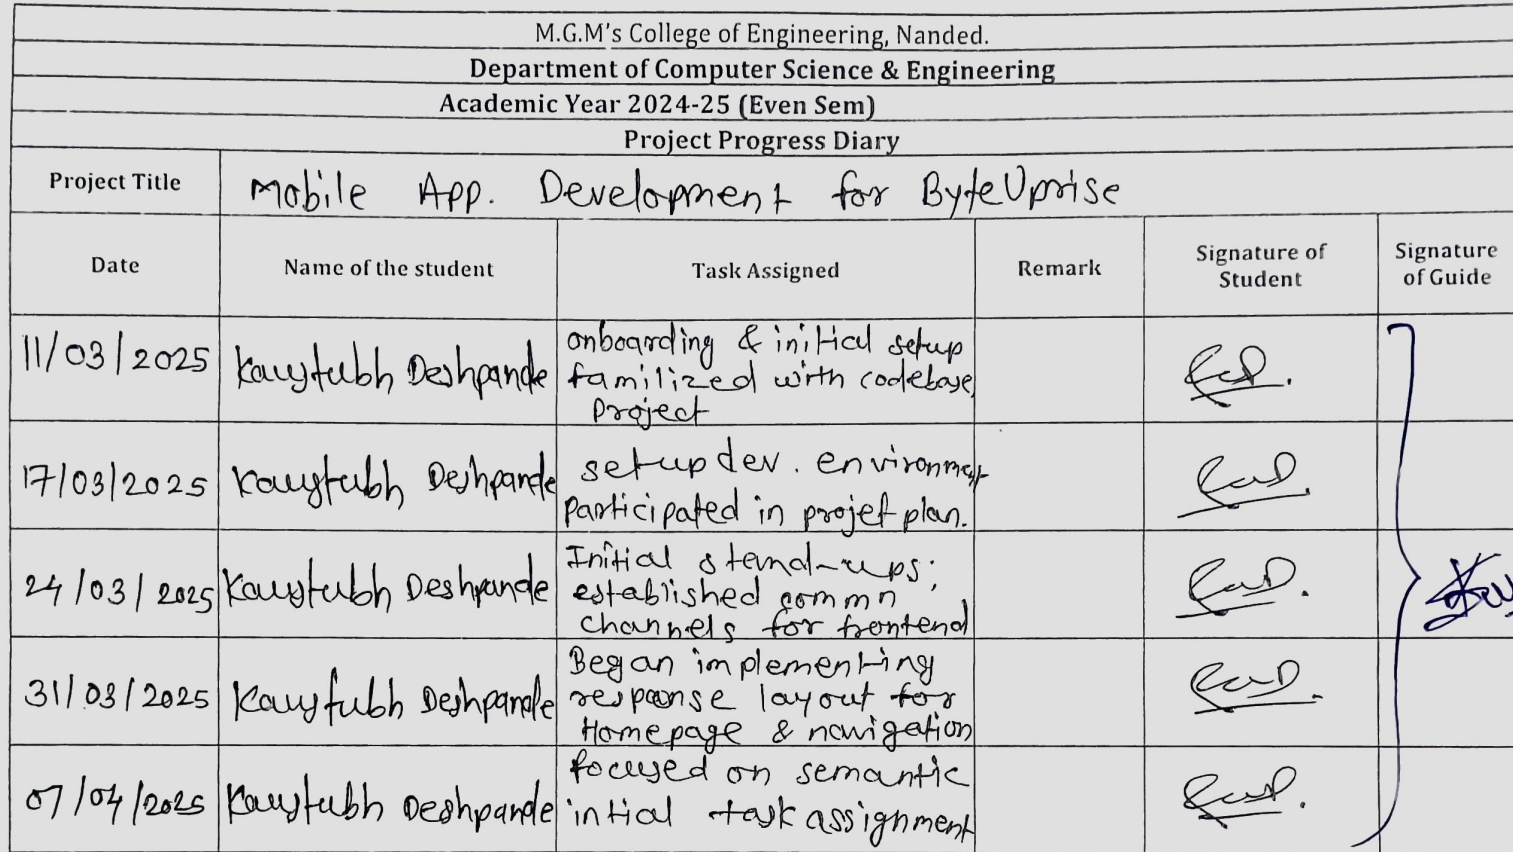 M.G.M's College of Engineering, Nanded.
Department of Computer Science & Engineering
Academic Year 2024-25 (Even Sem)
Project Progress Diary
Project Title
Mobile App. Development for ByteUprise
Date
Name of the student
Task Assigned
Remark
Signature of
Student
Signature
of Guide
11/03/2025
Kaustubh Deshpande
onboarding & initial setup
familized with codebase,
Project
17/03/2025
Kaustubh Deshpande
setup dev. environment
Participated in projet plan.
24/03/2025
Kaustubh Deshpande
Initial stand-ups;
established commn
channels for frontend
31/03/2025
Kaustubh Deshpande
Began implementing
response layout for
Homepage & navigation
07/04/2025
Kaustubh Deshpande
focused on semantic
intial task assignment